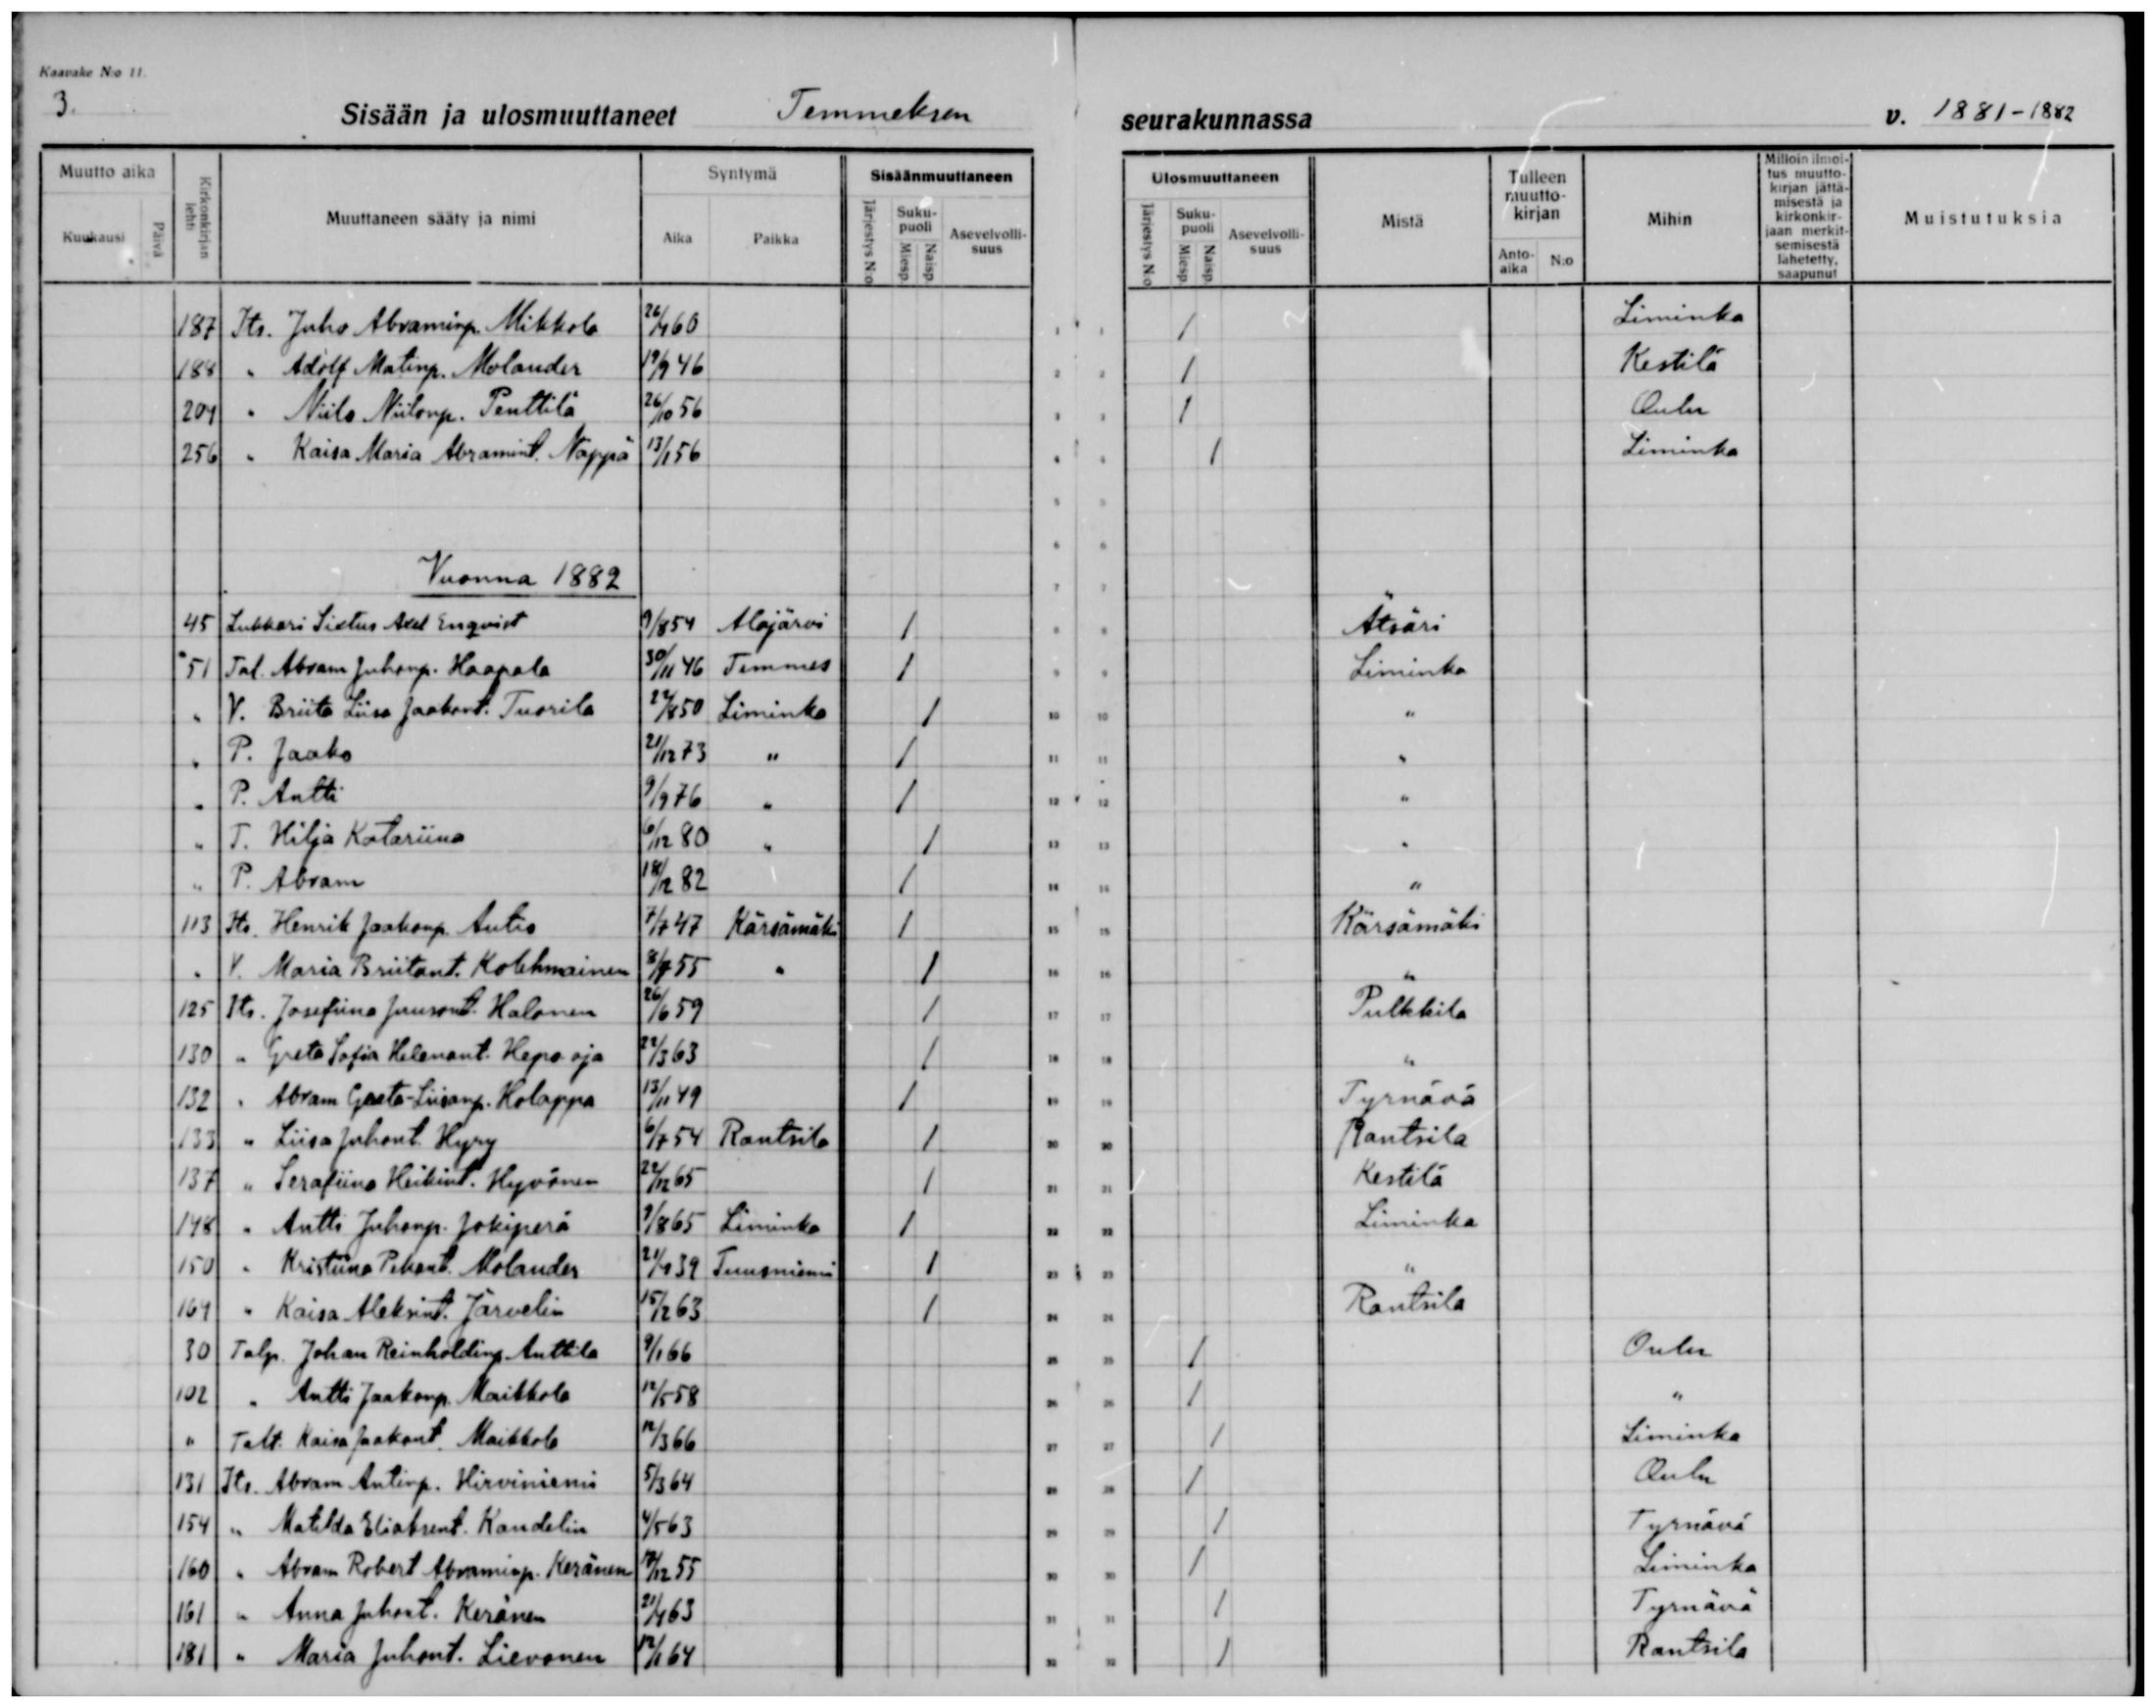 Kaavake N:o 11.
3.
Sisään ja ulosmuuttaneet Temmeksen seurakunnassa v. 1881-1882
Muutto aika
Kuukausi
Päivä
Kirkonkirjan lehti
Muuttaneen sääty ja nimi
Syntymä
Aika
Paikka
Sisäänmuuttaneen
Järjestys N:o
Sukupuoli
Miesp.
Naisp.
Asevelvollisuus
Ulosmuuttaneen
Järjestys N:o
Sukupuoli
Miesp.
Naisp.
Asevelvollisuus
Mistä
Tulleen muuttokirjan
Anto-aika
N:o
Mihin
Milloin ilmoitus muuttokirjan jättämisestä ja kirkonkirjaan merkitsemisestä lähetetty, saapunut
Muistutuksia
187 Its. Juho Abraminp. Mikkola 26/4 60 1 1 / Liminka
188 " Adolf Matinp. Molander 19/9 46 2 2 / Kestilä
204 " Niilo Niilonp. Penttilä 26/10 56 3 3 / Oulu
256 " Kaisa Maria Abramint. Nappä 13/1 56 4 4 / Liminka
5 5
6 6
Vuonna 1882 7 7
45 Lukkari Sixtus Axel Enqvist 9/8 54 Alajärvi / 8 8 Ätsäri
51 Tal. Abram Juhonp. Haapala 30/11 46 Temmes / 9 9 Liminka
" V. Briita Liisa Jaakont. Tuorila 22/8 50 Liminka / 10 10 "
" P. Jaako 21/12 73 " / 11 11 "
" P. Antti 9/9 76 " / 12 12 "
" T. Hilja Katariina 6/12 80 " / 13 13 "
" P. Abram 18/12 82 / 14 14 "
113 Its. Henrik Jaakonp. Autio 7/7 47 Kärsämäki / 15 15 Kärsämäki
" V. Maria Briitant. Kolehmainen 8/7 55 " / 16 16 "
125 Its. Josefiina Juusont. Halonen 26/6 59 / 17 17 Pulkkila
130 " Greta Sofia Helenant. Hepo-oja 22/3 63 / 18 18 "
132 " Abram Greta-Liisanp. Holappa 13/11 49 / 19 19 Tyrnävä
133 " Liisa Juhont. Hyry 6/7 54 Rantsila / 20 20 Rantsila
137 " Serafiina Heikint. Hyvönen 22/12 65 / 21 21 Kestilä
148 " Antti Juhonp. Jokiperä 9/8 65 Liminka / 22 22 Liminka
150 " Kristiina Pekant. Molander 21/4 39 Tuusniemi / 23 23 "
164 " Kaisa Aleksint. Järvelin 15/2 63 / 24 24 Rantsila
30 Talp. Johan Reinholdinp. Anttila 9/1 66 25 25 / Oulu
102 " Antti Jaakonp. Maikkola 12/5 58 26 26 / "
" Talt. Kaisa Jaakont. Maikkola 12/3 66 27 27 / Liminka
131 Its. Abram Antinp. Hirviniemi 5/3 64 28 28 / Oulu
154 " Matilda Eliaksent. Kandelin 4/5 63 29 29 / Tyrnävä
160 " Abram Robert Abraminp. Keränen /12 55 30 30 / Liminka
161 " Anna Juhont. Keränen 21/4 63 31 31 / Tyrnävä
181 " Maria Juhont. Lievonen 12/1 64 32 32 / Rantsila